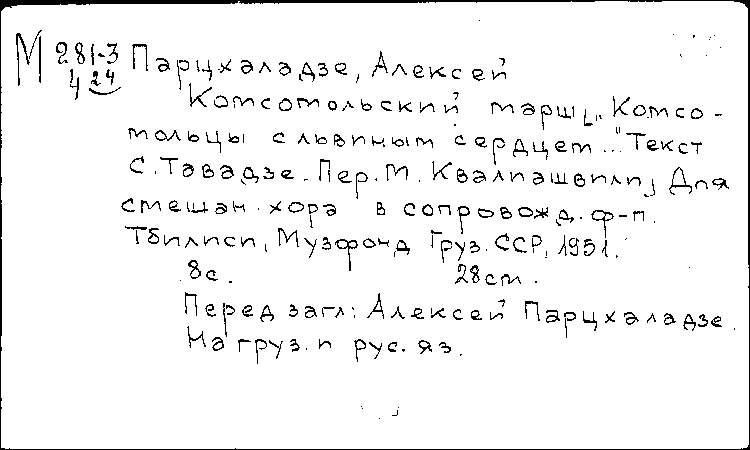 М 281-3 Парцхаладзе, Алексей
4 24
Комсомольский марш [„Комсо-
мольцы с львиным сердцем..." Текст
С. Тавадзе. Пер. М. Квалиашвили] Для
смешан. хора в сопровожд. ф-п.
Тбилиси, Музфонд Груз. ССР, 1951.
8с. 28см.
Перед загл: Алексей Парцхаладзе.
На груз. и рус. яз.